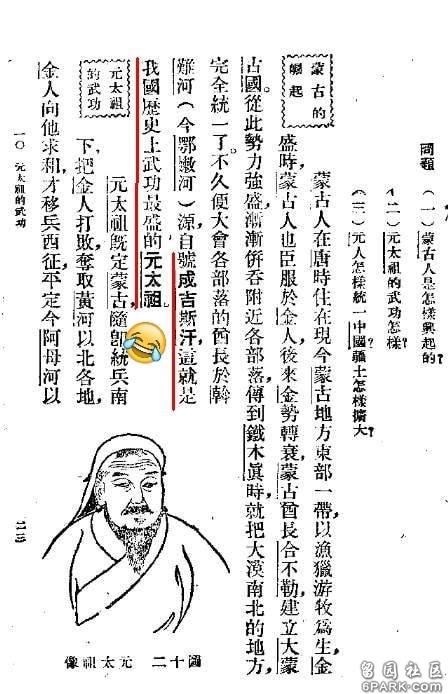 問題 (一)蒙古人是怎樣興起的?
(二)元太祖的武功怎樣?
(三)元人怎樣統一中國疆土怎樣擴大?
蒙古的
崛起
蒙古人在唐時住在現今蒙古地方東部一帶,以漁獵游牧爲生,金
盛時,蒙古人也臣服於金人,後來金勢轉衰,蒙古酋長合不勒建立大蒙
古國。從此勢力強盛,漸漸併吞附近各部落,傳到鐵木眞時,就把大漠南北的地方,
完全統一了。不久便大會各部落的酋長於斡
難河(今鄂嫩河)源,自號成吉斯汗,這就是
我國歷史上武功最盛的元太祖。
元太祖
的武功
元太祖既定蒙古,隨卽統兵南
下,把金人打敗,奪取黃河以北各地,
金人向他求和,才移兵西征,平定今阿母河以
圖十二 元太祖像
一〇 元太祖的武功
二三
留园社区
6PARK.COM